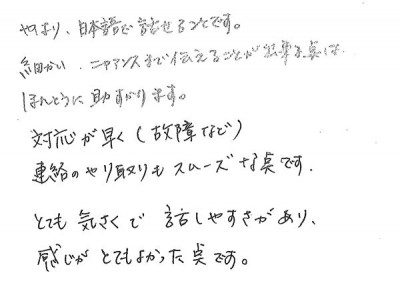 やはり、日本語で話せることです。
細かい、ニャアンスまで伝えることが出来る点は、
ほんとうに助すかります。
対応が早く(故障など)
連絡のやり取りもスムーズな点です.
とても気さくで話しやすさがあり、
感じがとてもよかった点です。